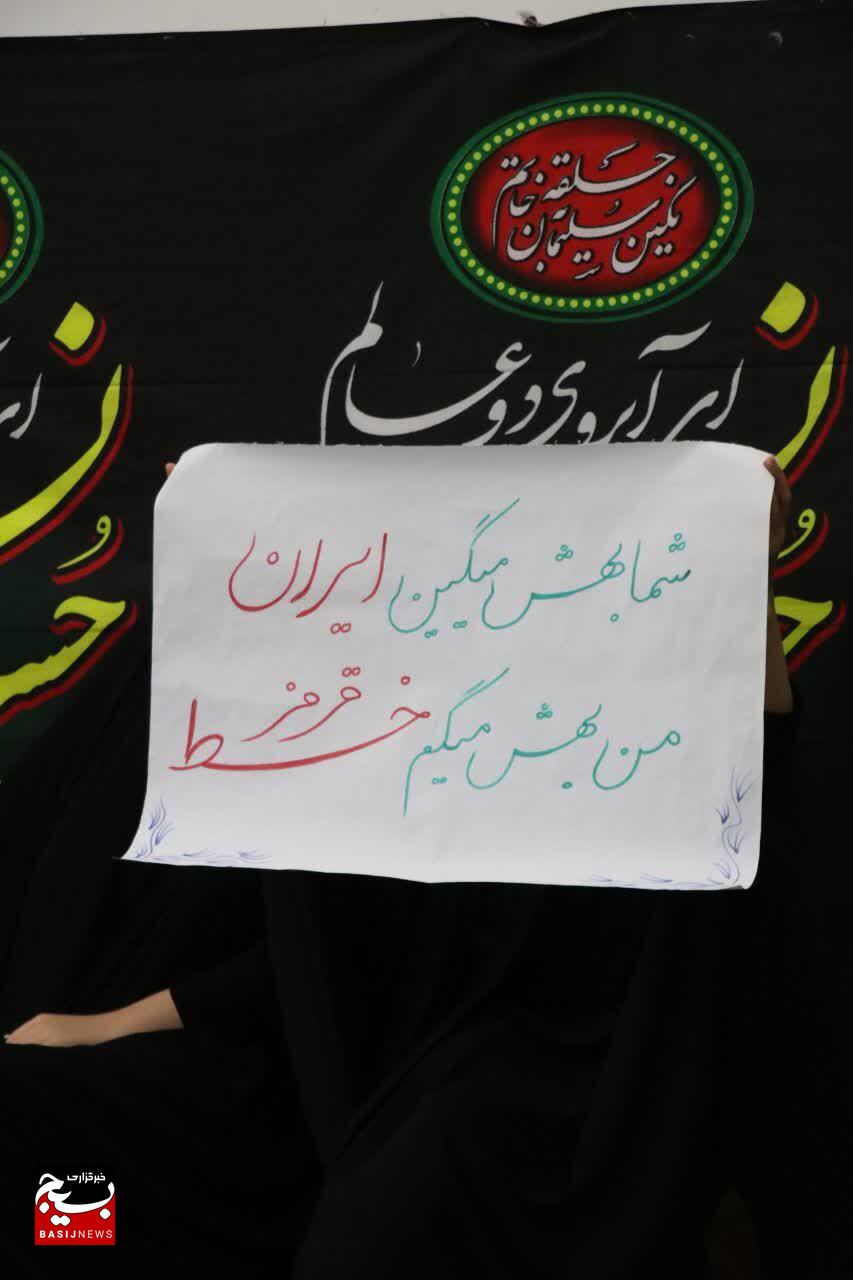 حلقه خاتم
نگین سلیمان
ای آبروی دو عالم
ای
و
و
شما بهش میگین ایران
من بهش میگم خط قرمز
خبرگزاری
بسیج
BASIJNEWS